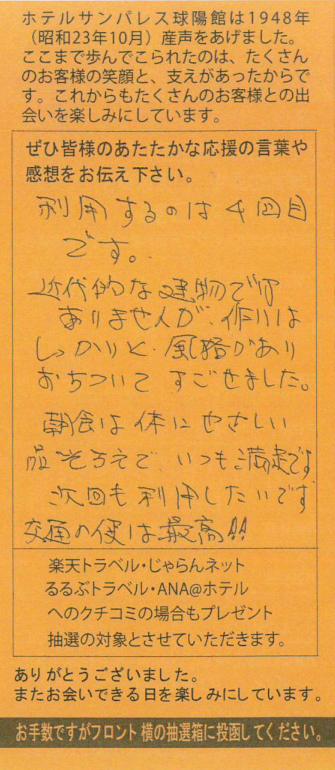 ホテルサンパレス球陽館は1948年
（昭和23年10月）産声をあげました。
ここまで歩んでこられたのは、たくさん
のお客様の笑顔と、支えがあったからで
す。これからもたくさんのお客様との出
会いを楽しみにしています。
ぜひ皆様のあたたかな応援の言葉や
感想をお伝え下さい。
利用するのは4回目
です。
近代的な建物では
ありませんが、作りは
しっかりと、風格があり
おちついて すごせました。
朝食は体にやさしい
品ぞろえで、いつも満足です
次回も利用したいです
交通の便は最高!!
楽天トラベル・じゃらんネット
るるぶトラベル・ANA@ホテル
へのクチコミの場合もプレゼント
抽選の対象とさせていただきます。
ありがとうございました。
またお会いできる日を楽しみにしています。
お手数ですがフロント横の抽選箱に投函してください。